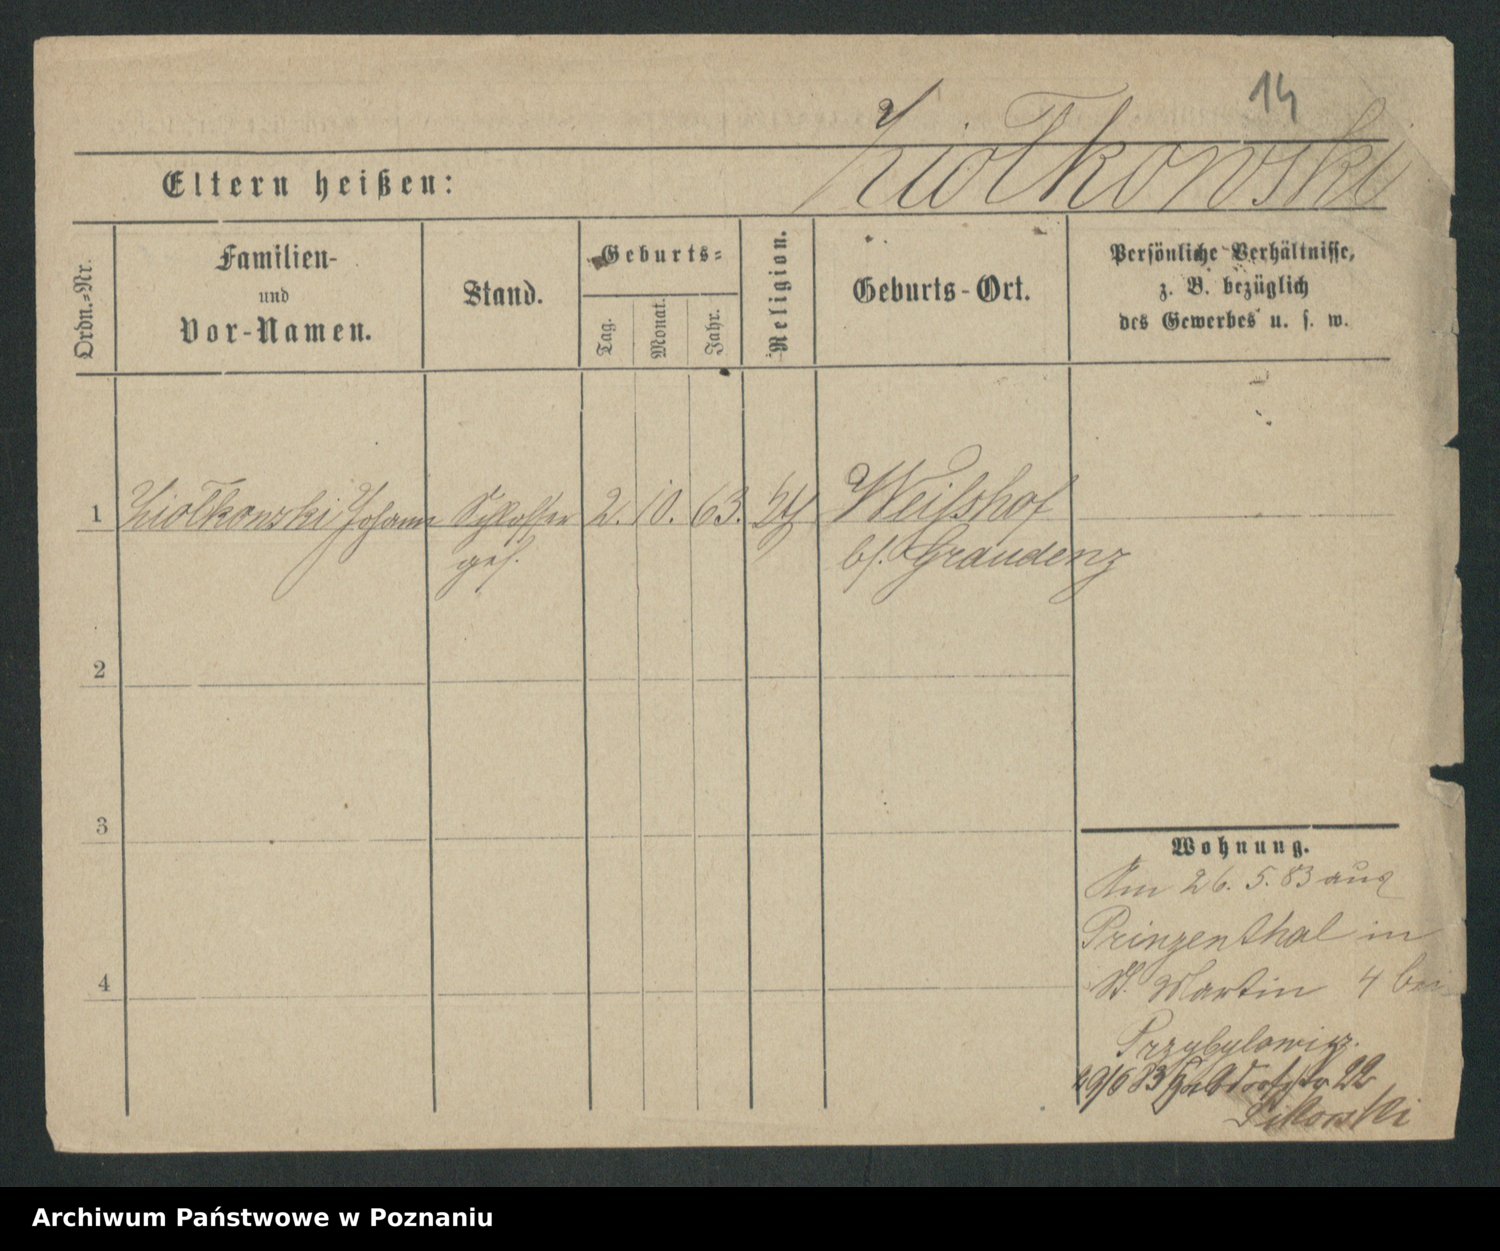 14
Ziołkowski
Eltern heißen:
Ordn.-Nr.
Familien-
und
Vor-Namen.
Stand.
Geburts-
Tag.
Monat.
Jahr.
Religion.
Geburts-Ort.
Persönliche Verhältnisse,
z. B. bezüglich
des Gewerbes u. s. w.
1 Ziołkowski Johann Schlosser 2. 10. 63. Weißhof
ges. bei Graudenz
2
3
4
Wohnung.
Am 26. 5. 83 aus
Prinzenthal in
St. Martin 4 bei
Przybylowicz.
83 Halbdorfstr 22
Archiwum Państwowe w Poznaniu